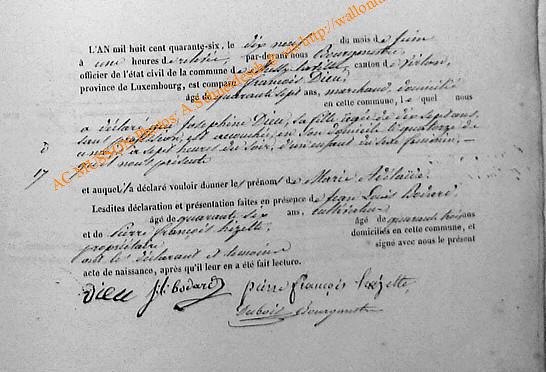 L'AN mil huit cent quarante-six, le dix neuf du mois de juin
à une heures de relevée, par-devant nous Bourgmestre
officier de l'état civil de la commune de Mussy la ville canton de Virton,
province de Luxembourg, est comparu françois Dieu,
âgé de quarante sept ans, marchand, domicilié
en cette commune, le quel nous
a déclaré que Josephine Dieu, sa fille, âgée de dix sept ans,
sans profession, est accouchée en son domicile le quatorze de
ce mois, à sept heures du soir, d'un enfant du sexe féminin,
17
qu'il nous présente
et auquel il a déclaré vouloir donner les prénoms de Marie
Lesdites déclaration et présentation faites en présence de Jean Louis Bodard
âgé de quarante six ans, cultivateur
et de Pierre françois Lozette, âgé de quarante ans
propriétaire domiciliés en cette commune, et
ont le déclarant et témoins signé avec nous le présent
acte de naissance, après qu'il leur en a été fait lecture.
Dieu J.L. Bodard pierre françois Lozette,
Dubois Bourgmestre
AC MUSSON Photos: A. Schmedesch http://wallonia